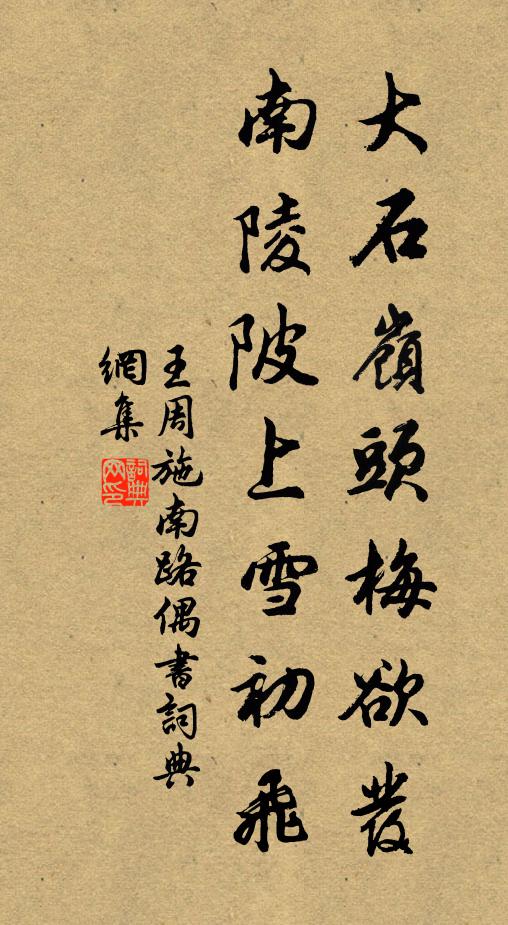 大石嶺頭梅欲發
南陵陂上雪初飛
王周施南路偶書詞典
網集
詞典
网印